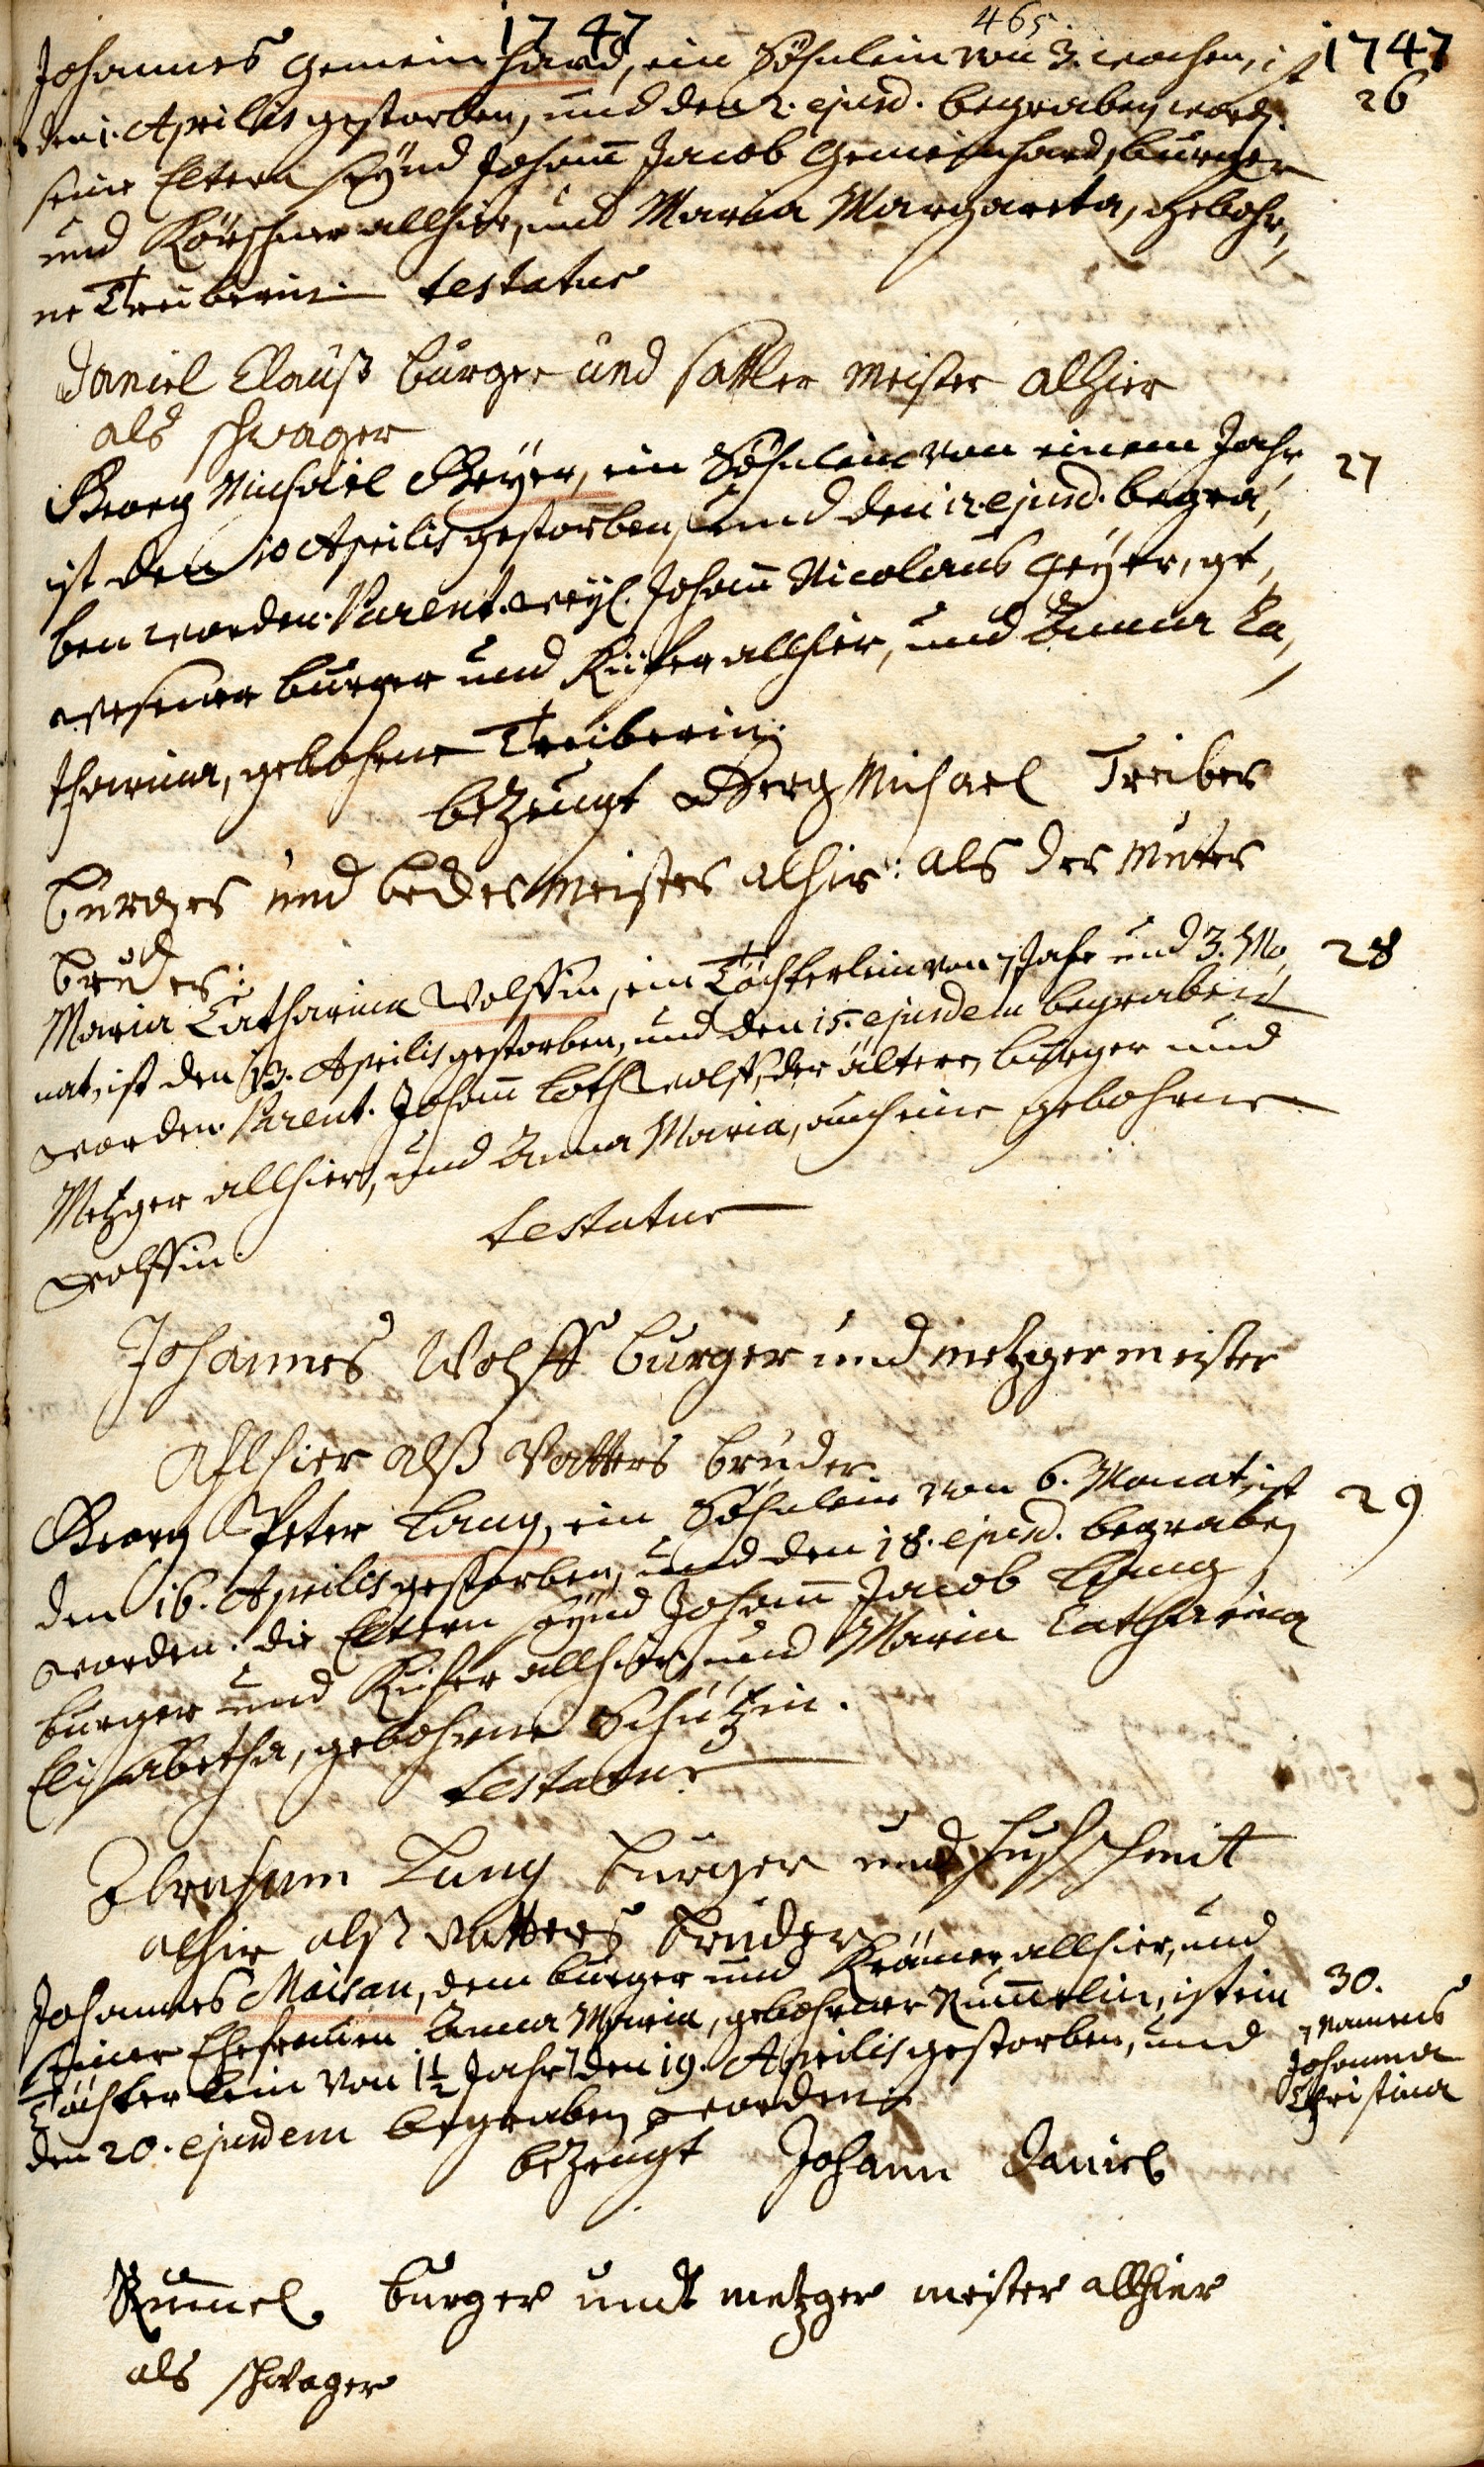 1747 465. 1747
Johannes Gemeinhard, ein Söhnlein von 3. wochen, ist 26
den 1. Aprilis gestorben, und den 2. ejusd. begraben word.
seine Eltern seynd Johañ Jacob Gemeinhard, burger
und Körschner allhier, und Maria Margareta, gebohr,
ne Treiberin. testatur
Daniel Clauß burger und sattler meister alhier
als schwager
Georg Michael Geyer, ein Söhnlein von einem Jahr, 27
ist den 10 Aprilis gestorben, und den 12. ejusd. begra,
ben worden. Parent. weyl. Johañ Nicolaus Geyer, ge,
wesener burger und Küfer allhier, und Anna Ca,
tharina, gebohrne Treiberin.
bezeugt Georg Michael Treiber
burger und beder meister alhir: als der muter
bruder:
Maria Catharina Wolffin, ein Töchterlein von 7 Jahr und 3. Mo, 28
nat, ist den 13. Aprilis gestorben, und den 15. ejusdem begraben
worden. Parent. Johañ Loth Wolff, der ältere, burger und
Metzger allhier, und Anna Maria, auch eine gebohrne
Wolffin. testatur
Johannes Wolff burger und metzger meister
alhier alß Vatters bruder.
Georg Peter Lang, ein Söhnlein von 6. Monat, ist 29
den 16. Aprilis gestorben, und den 18. ejusd. begraben
worden. die Eltern seynd Johañ Jacob Lang
burger und Küfer allhier, und Maria Catharina
Elisabetha, gebohrne Schützin.
testatur
Abraham Lang burger und hufschmit
alhir alß Vatters bruder
Johannes Maisan, dem burger und Krämer allhier, und 30.
seiner Ehefrauen Anna Maria, gebohrner Rum̃elin, ist ein namens
Töchterlein von 1½ Jahr den 19. Aprilis gestorben, und Johanna
den 20. ejusdem begraben worden. Christina
bezeugt Johann Daniel
Rum̃el burger undt metzger meister allhier
als schwager